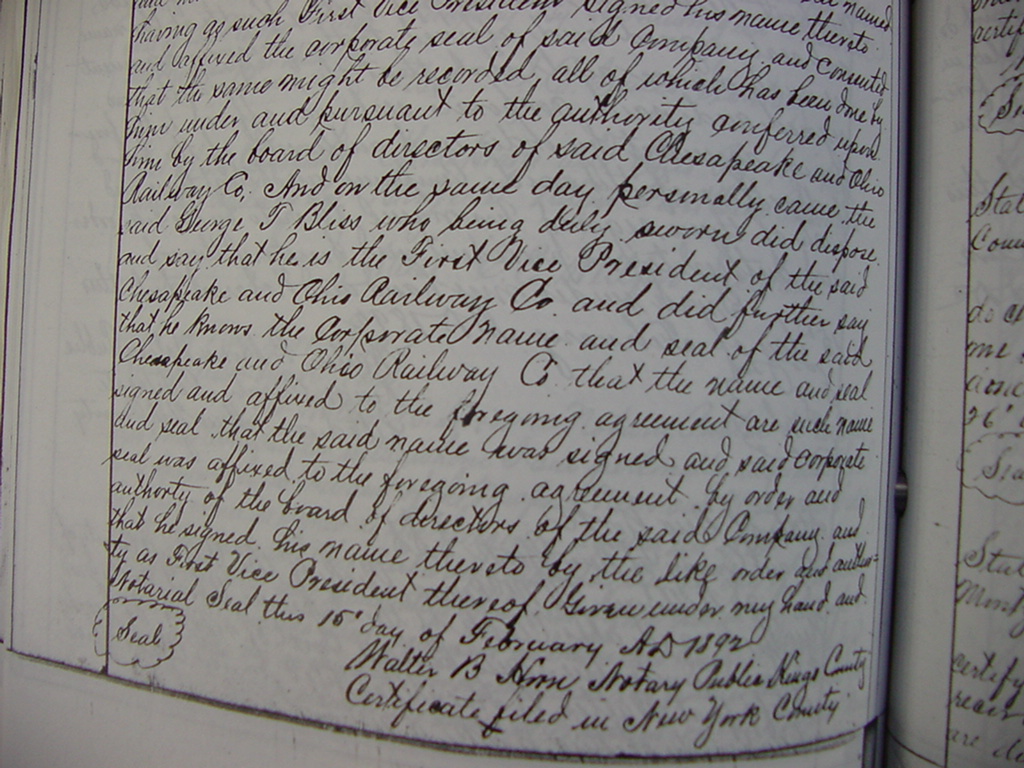 having as such First Vice President signed his name thereto
and affixed the corporate seal of said Company and consented
that the same might be recorded, all of which has been done by
him under and pursuant to the authority conferred upon
him by the board of directors of said Chesapeake and Ohio
Railway Co; And on the same day personally came the
said George T Bliss who being duly sworn did dispose
and say that he is the First Vice President of the said
Chesapeake and Ohio Railway Co. and did further say
that he knows the Corporate name and seal of the said
Chesapeake and Ohio Railway Co that the name and seal
signed and affixed to the foregoing agreement are such name
and seal that the said name was signed and said corporate
seal was affixed to the foregoing agreement by order and
authority of the board of directors of the said Company and
that he signed his name thereto by the like order and authori-
ty as First Vice President thereof Given under my hand and
Notarial Seal this 15" day of February AD 1892
Seal
Walter B Notary Public Kings County
Certificate filed in New York County
certify
Stat
Coun
me
26"
Stat
certify
are